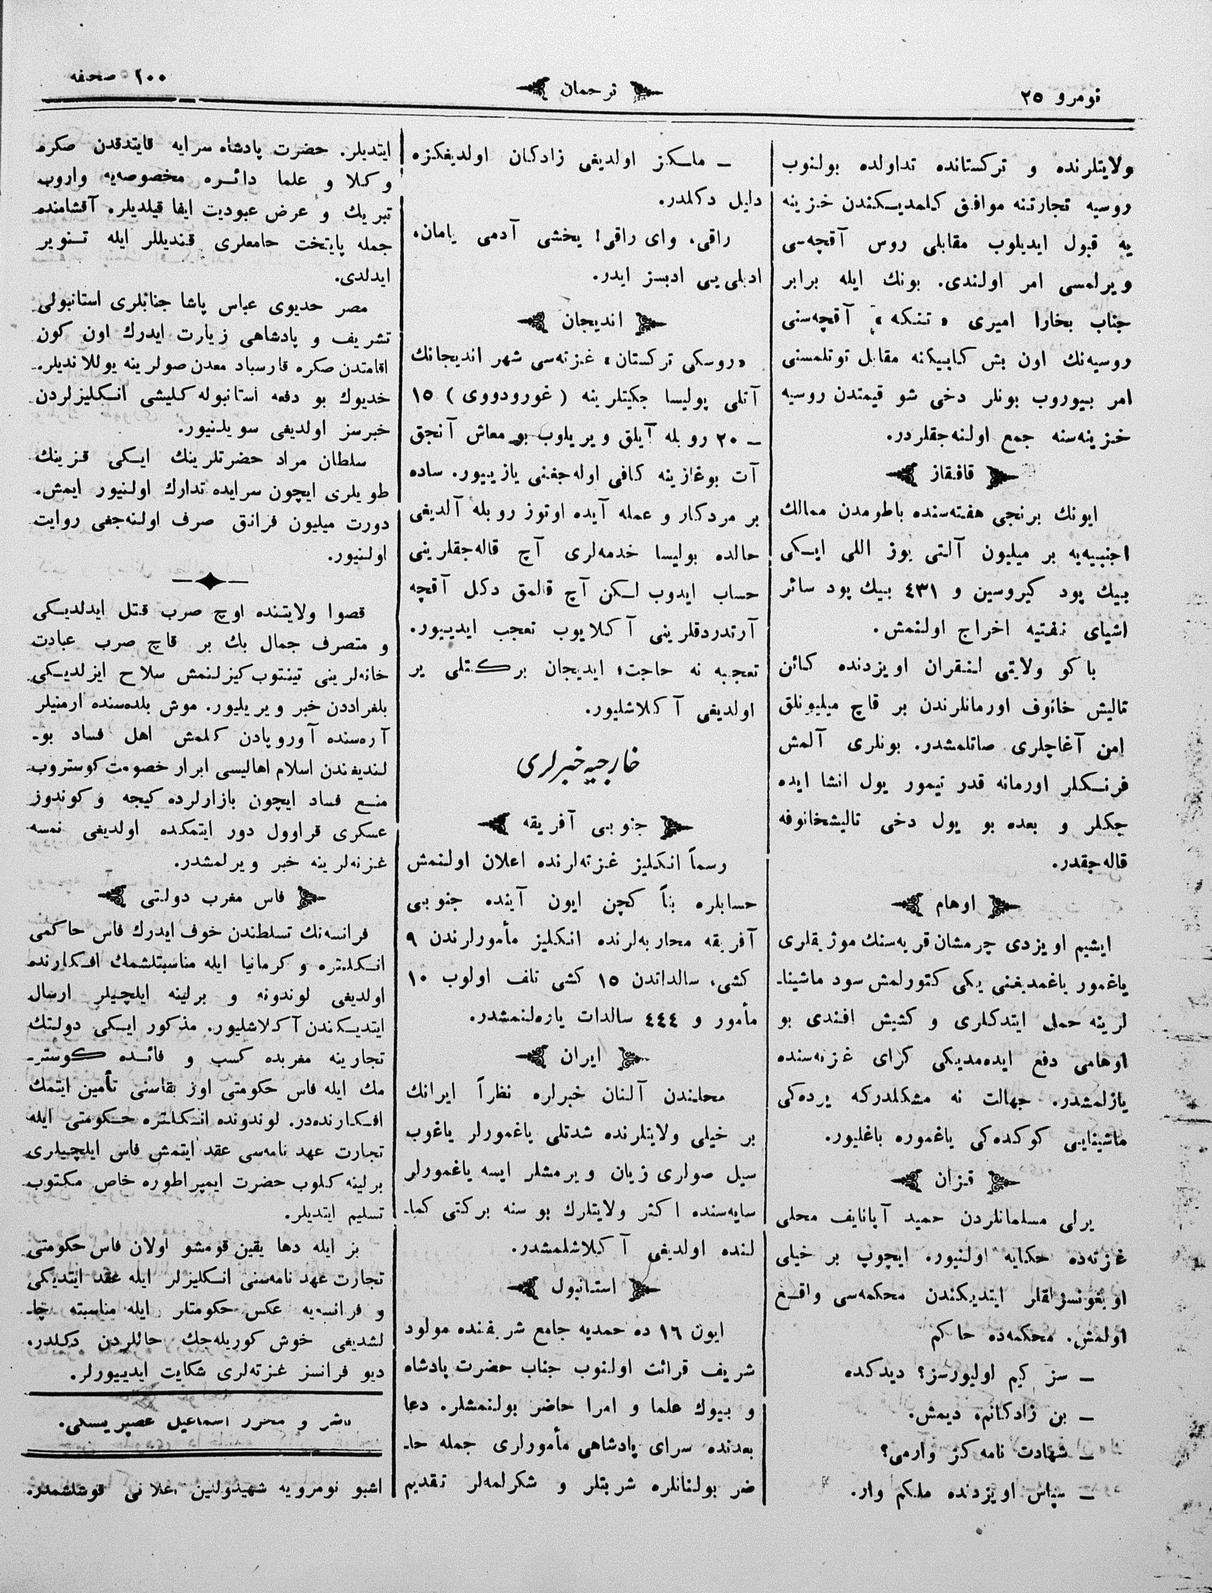 نومرو ٢٥
ترجمان
٢٠٠ صحفه
ولايتلرنده و تركستانده تداولده بولنوب
روسيه تجارتنه موافق كلمديكندن خزينه
يه قبول ايديلوب مقابلى روس آقچه‌سى
ويرلمسى امر اولندى. بونك ايله برابر
جناب بخارا اميرى «تنكه» آقچه‌سنى
روسيه‌نك اون بش كاپيكنه مقابل توتلمسنى
امر بيوروب بونلر دخى شو قيمتدن روسيه
خزينه‌سنه جمع اولنه‌جقلردر.
قافقاز
ايونك برنجى هفته‌سنده باطومدن ممالك
اجنبيه‌يه بر ميليون آلتى يوز اللى ايكى
بيك پود كيروسين و ٤٣١ بيك پود سائر
اشياى نفتيه اخراج اولنمش.
باكو ولايتى لنقران اويزدنده كائن
تاليش خانوف اورمانلرندن بر قاچ ميليونلق
امن آغاچلرى صاتلمشدر. بونلرى آلمش
فرنكلر اورمانه قدر تيمور يول انشا ايده
جكلر و بعده بو يول دخى تاليشخانوفه
قاله‌جقدر.
اوهام
ايشيم اويزدى چرمشان قريه‌سنك موژيقلرى
ياغمور ياغمديغنى يكى كتورلمش سود ماشينا-
لرينه حمل ايتدكلرى و كشيش افندى بو
اوهامى دفع ايده‌مديكى كراى غزته‌سنده
يازلمشدر. جهالت نه مشكلدركه يرده‌كى
ماشينايى كوكده‌كى ياغموره باغليور.
قزان
يرلى مسلمانلردن حميد آپانايف محلى
غزته‌ده حكايه اولنيور. ايچوپ بر خيلى
اويغونسزلقلر ايتديكندن محكمه‌سى واقع
اولمش. محكمه‌ده حاكم
ـ سز كيم اوليورسز؟ ديدكده
ـ بن زادكانم، ديمش.
ـ شهادت نامه‌كز وارمى؟
ـ سپاس اويزدنده ملكم وار.
ـ ملكز اولديغى زادكان اولديغكزه
دليل دكلدر.
راقى، واى راقى! يخشى آدمى يامان،
ادبلى‌يى ادبسز ايدر.
انديجان
«روسكى تركستان» غزته‌سى شهر انديجانك
آتلى پوليسا جكيتلرينه (غورودووى) ١٥
ـ ٢٠ روبله آيلق ويريلوب بو معاش آنجق
آت بوغازينه كافى اوله‌جغنى يازييور. ساده
بر مردكار و عمله آيده اوتوز روبله آلديغى
حالده بوليسا خدمه‌لرى آچ قاله‌جقلرينى
حساب ايدوب لكن آچ قالمق دكل آقچه
آرتدردقلرينى آكلايوب تعجب ايدييور.
تعجبه نه حاجت؛ ايديجان بركتلى ير
اولديغى آكلاشليور.
خارجيه خبرلرى
جنوبى آفريقه
رسماً انكليز غزته‌لرنده اعلان اولنمش
حسابلره بناً كچن ايون آينده جنوبى
آفريقه محاربه‌لرنده انكليز مأمورلرندن ٩
كشى، سالداتدن ١٥ كشى تلف اولوب ١٠
مأمور و ٤٤٤ سالدات ياره‌لنمشدر.
ايران
محلندن آلنان خبرلره نظراً ايرانك
بر خيلى ولايتلرنده شدتلى ياغمورلر ياغوب
سيل صولرى زيان ويرمشلر ايسه ياغمورلر
سايه‌سنده اكثر ولايتلرك بو سنه بركتى كما-
لنده اولديغى آكلاشلمشدر.
استانبول
ايون ١٦ ده حمديه جامع شريفنده مولود
شريف قرائت اولنوب جناب حضرت پادشاه
و بيوك علما و امرا حاضر بولنمشلر. دعا
بعدنده سراى پادشاهى مأمورلرى جمله حا-
ضر بولنانلره شربتلر و شكرلمه‌لر تقديم
ايتديلر. حضرت پادشاه سرايه قايتدقدن صكره
وكلا و علما دائره مخصوصه‌يه واروب
تبريك و عرض عبوديت ايفا قيلديلر. آقشامنده
جمله پايتخت جامعلرى قنديللر ايله تنوير
ايدلدى.
مصر خديوى عباس پاشا جنابلرى استانبولى
تشريف و پادشاهى زيارت ايدرك اون كون
اقامتدن صكره قارسباد معدن صولرينه يوللانديلر.
خديوك بو دفعه استانبوله كليشى انكليزلردن
خبرسز اولديغى سويلنيور.
سلطان مراد حضرتلرينك ايكى قزينك
طويلرى ايچون سرايده تدارك اولنيور ايمش.
دورت ميليون فرانق صرف اولنه‌جغى روايت
اولنيور.
قصوا ولايتنده اوچ صرب قتل ايدلديكى
و متصرف جمال بك بر قاچ صرب عبادت
خانه‌لرينى تينتوب كيزلنمش سلاح ايزلديكى
بلغراددن خبر ويريليور. موش بلده‌سنده ارمنيلر
آره‌سنده آوروپادن كلمش اهل فساد بو-
لنديغندن اسلام اهاليسى ابراز خصومت كوستروب
منع فساد ايچون بازارلرده كيجه و كوندوز
عسكرى قراوول دور ايتمكده اولديغى نمسه
غزته‌لرينه خبر ويرلمشدر.
فاس مغرب دولتى
فرانسه‌نك تسلطندن خوف ايدرك فاس حاكمى
انكلتره و كرمانيا ايله مناسبتلشمك افكارنده
اولديغى لوندونه و برلينه ايلچيلر ارسال
ايتديكندن آكلاشليور. مذكور ايكى دولتك
تجارينه مغربده كسب و فائده كوستر-
مك ايله فاس حكومتى اوز بقاسنى تأمين ايتمك
افكارنده‌در. لوندونده انكلتره حكومتى ايله
تجارت عهد نامه‌سى عقد ايتمش فاس ايلچيلرى
برلينه كلوب حضرت ايمپراطوره خاص مكتوب
تسليم ايتديلر.
بز ايله دها يقين قومشو اولان فاس حكومتى
تجارت عهد نامه‌سنى انكليزلر ايله عقد ايتديكى
و فرانسه‌يه عكس حكومتلر ايله مناسبته چا-
لشديغى خوش كوريله‌جك حاللردن دكلدر.
ديو فرانسز غزته‌لرى شكايت ايدييورلر.
ناشر و محرر اسماعيل غصپرينسكى.
اشبو نومرويه شهيدولين اعلانى قوشلشمدر.